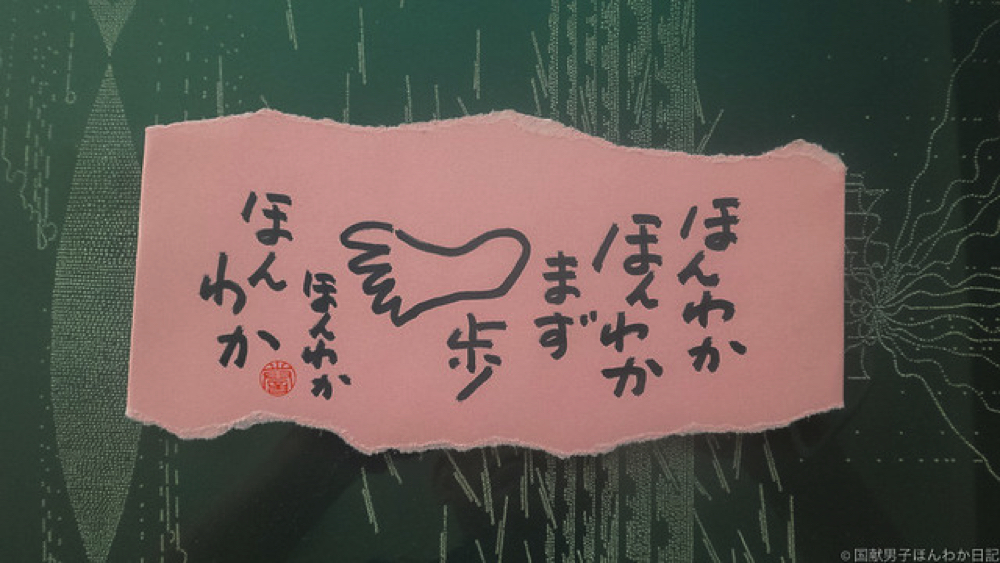 ほんわか
ほんわか
まず
歩
ほんわか
ほんわか
© 国献男子ほんわか日記